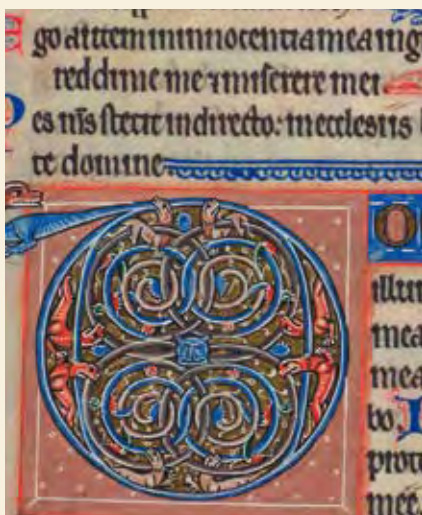 go autem in innocentia mea ing
redime me ⁊ miserere mei.
es m̄s stetit in directo: in ecclesiis
te domine
D O
illum
mea
mea
bo. I
prote
mee.